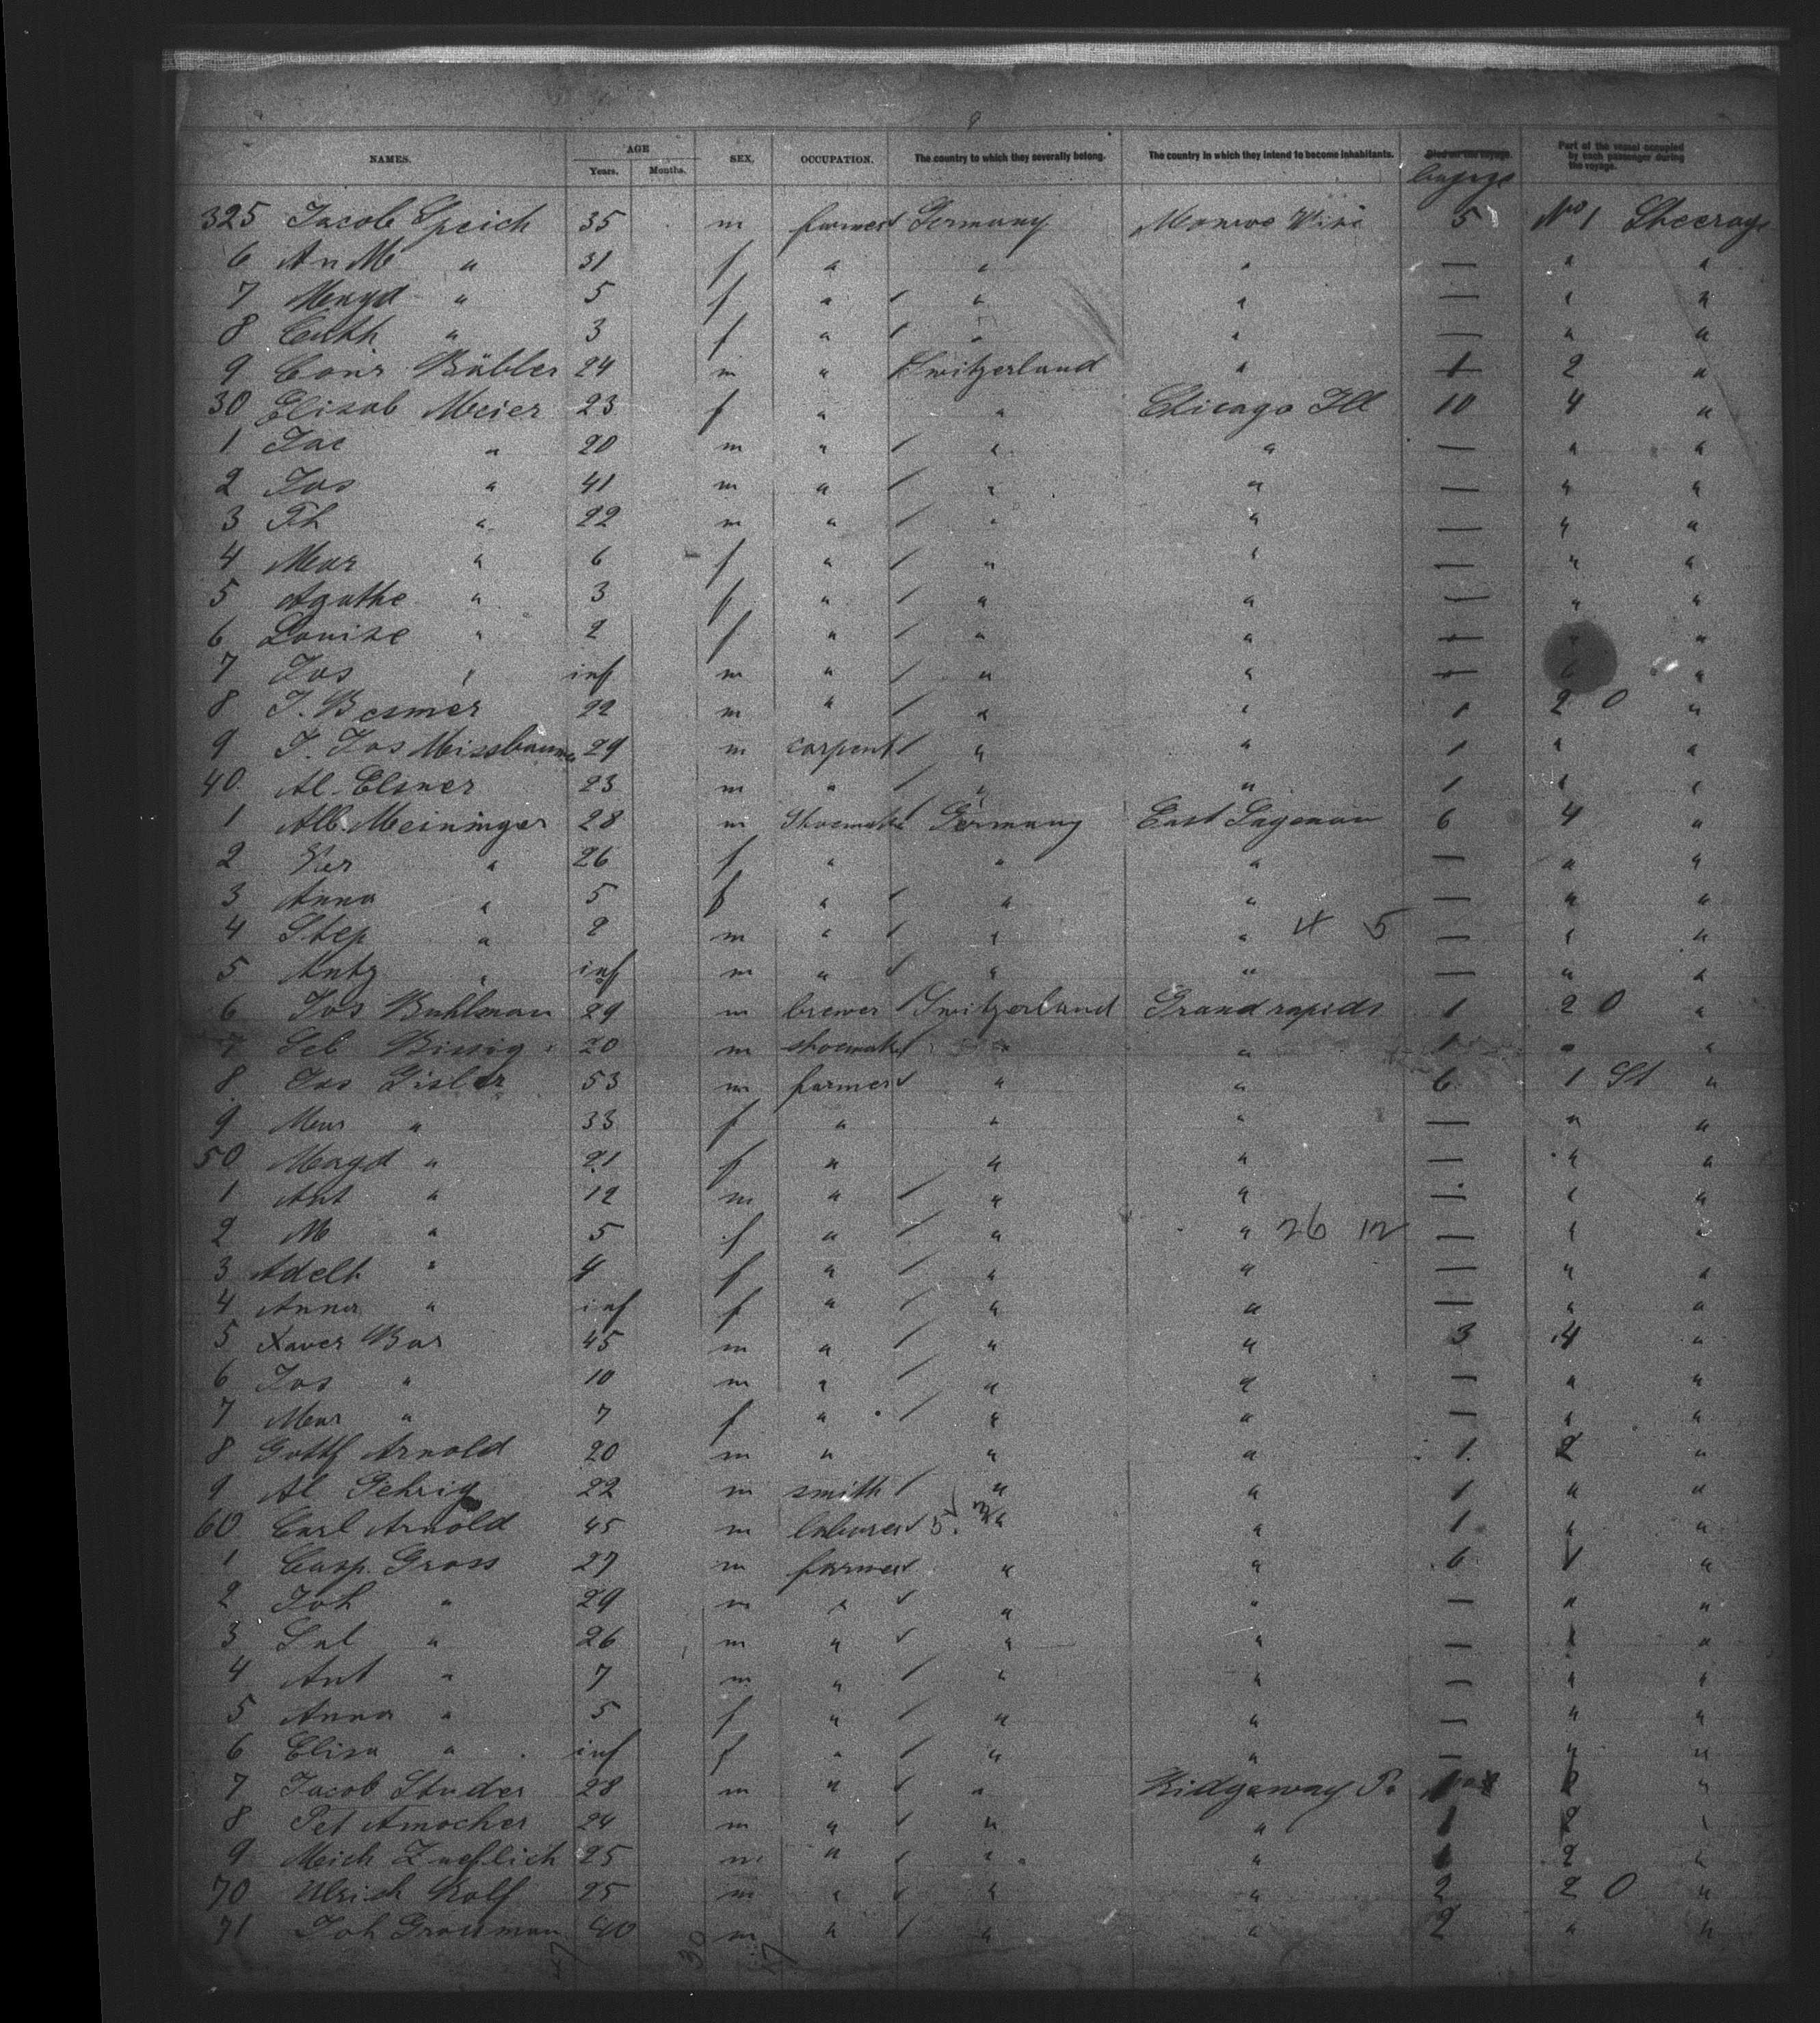 NAMES. AGE Years. Months. SEX, OCCUPATION. The country to which they severally belong. The country in which they intend to become inhabitants. Died on the voyage. Part of the vessel occupied by each passenger during the voyage.
325 Jacob Speich 35 m farmer Germany Monroe Wisc 5 No 1 Steerage
6 An M " 31 f " " " — " "
7 Magd " 5 f " " " — " "
8 Cath " 3 f " " " — " "
9 Conr Bäbler 24 m " Switzerland " 1 2 "
30 Elisab Meier 23 f " " Chicago Ill 10 4 "
1 Jac " 20 m " " " — " "
2 Jos " 41 m " " " — " "
3 " 22 m " " " — " "
4 Mar " 6 f " " " — " "
5 Agathe " 3 f " " " — " "
6 Louise " 2 f " " " — " "
7 Jos " inf m " " " — "
8 J. Besmer 22 m " " " 1 2 0 "
9 J. Jos 29 m carpent " " 1 " "
40 Al. Elsner 23 m " " " 1 " "
1 Alb. Meininger 28 m Shoemak Germany East Sagenau 6 4 "
2 Ver " 26 f " " " — " "
3 Anna " 5 f " " " — " "
4 Step " 2 m " " " 4 5 — " "
5 " inf m " " " — " "
6 Jos Buhlman 29 m brewer Switzerland Grand rapids 1 2 0 "
7 Seb Bissig 20 m shoemak " " 1 " "
8 Jos Gisler 53 m farmer " " 6 1 St "
9 Mar " 33 f " " " — " "
50 Magd " 21 f " " " — " "
1 Ant " 12 m " " " — " "
2 M " 5 f " " " 26 12 — " "
3 Adelh " 4 f " " " — " "
4 Anna " inf f " " " — " "
5 Xaver Bar 45 m " " " 3 4 "
6 Jos " 10 m " " " — " "
7 Mar " 7 f " " " — " "
8 Gottf Arnold 20 m " " " 1 2 "
9 Al Gehrig 22 m smith " " 1 " "
60 Carl Arnold 45 m laborer " " 1 " "
1 Casp. Gross 27 m farmer " " 6 1 "
2 Joh " 29 m " " " — " "
3 Sal " 26 m " " " — " "
4 Ant " 7 m " " " — " "
5 Anna " 5 f " " " — " "
6 Elisa " inf f " " " — " "
7 Jacob Studer 28 m " " Ridgeway Pa "
8 Pet Amacher 24 m " " " 1 2 "
9 Mich 25 m " " " 1 2 "
70 Ulrich Rolf 25 m " " " 2 2 0 "
71 Joh Grossman 40 m " " " 2 " "